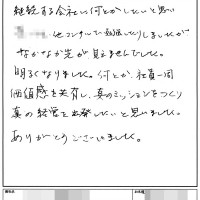 継続する会社に何とかしたいと思い
他コンサルで勉強したりしましたが
なかなか光が見えませんでした。
明るくなりました。何とか、社員一同
価値感を共有し、真のミッションをつくり
真の経営を出発したいと思いました。
ありがとうございました。